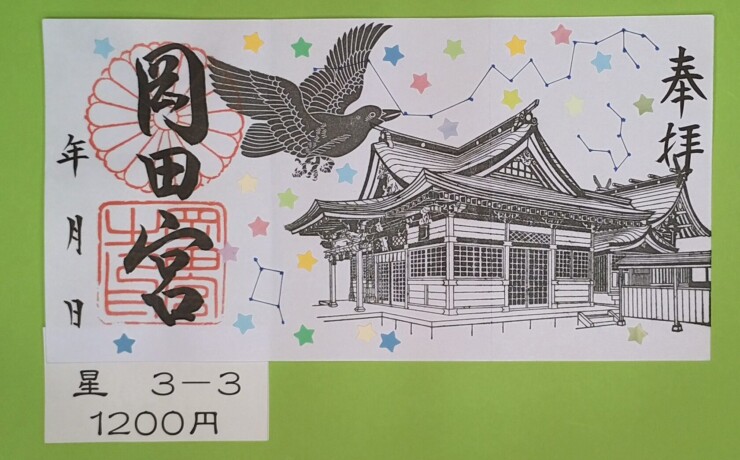 奉拝
岡田宮
年 月 日
星 3－3
1200円